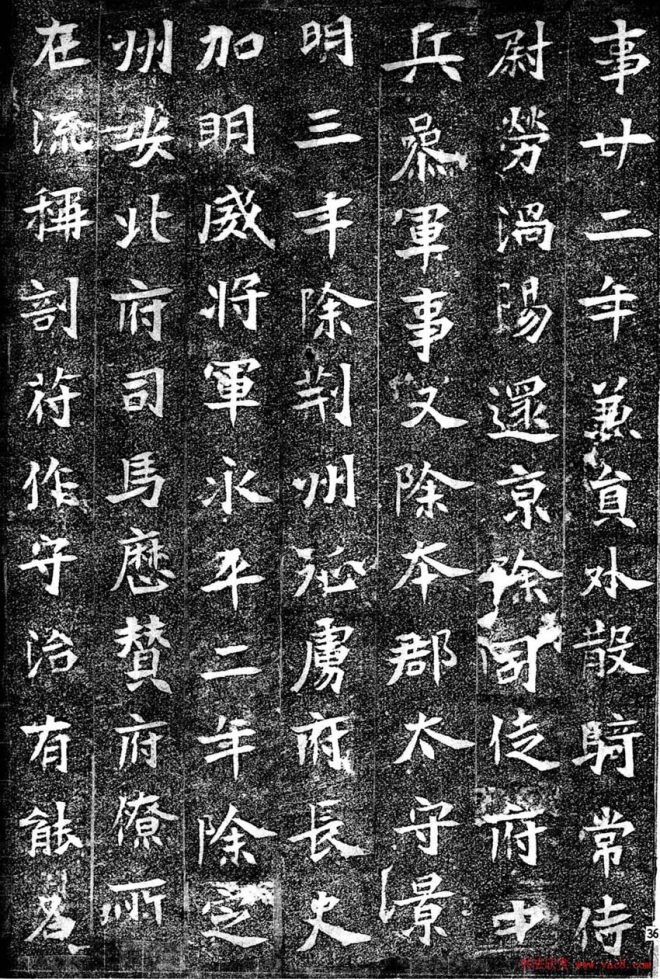 事廿二年兼員外散騎常侍
尉勞渦陽還京除司徒府中
兵叅軍事又除本郡太守景
明三年除荊州征虜府長史
加明威將軍永平二年除定
州安北府司馬歷贊府僚所
在流稱剖苻作守治有能名
36
书法欣赏 www.yac8.com